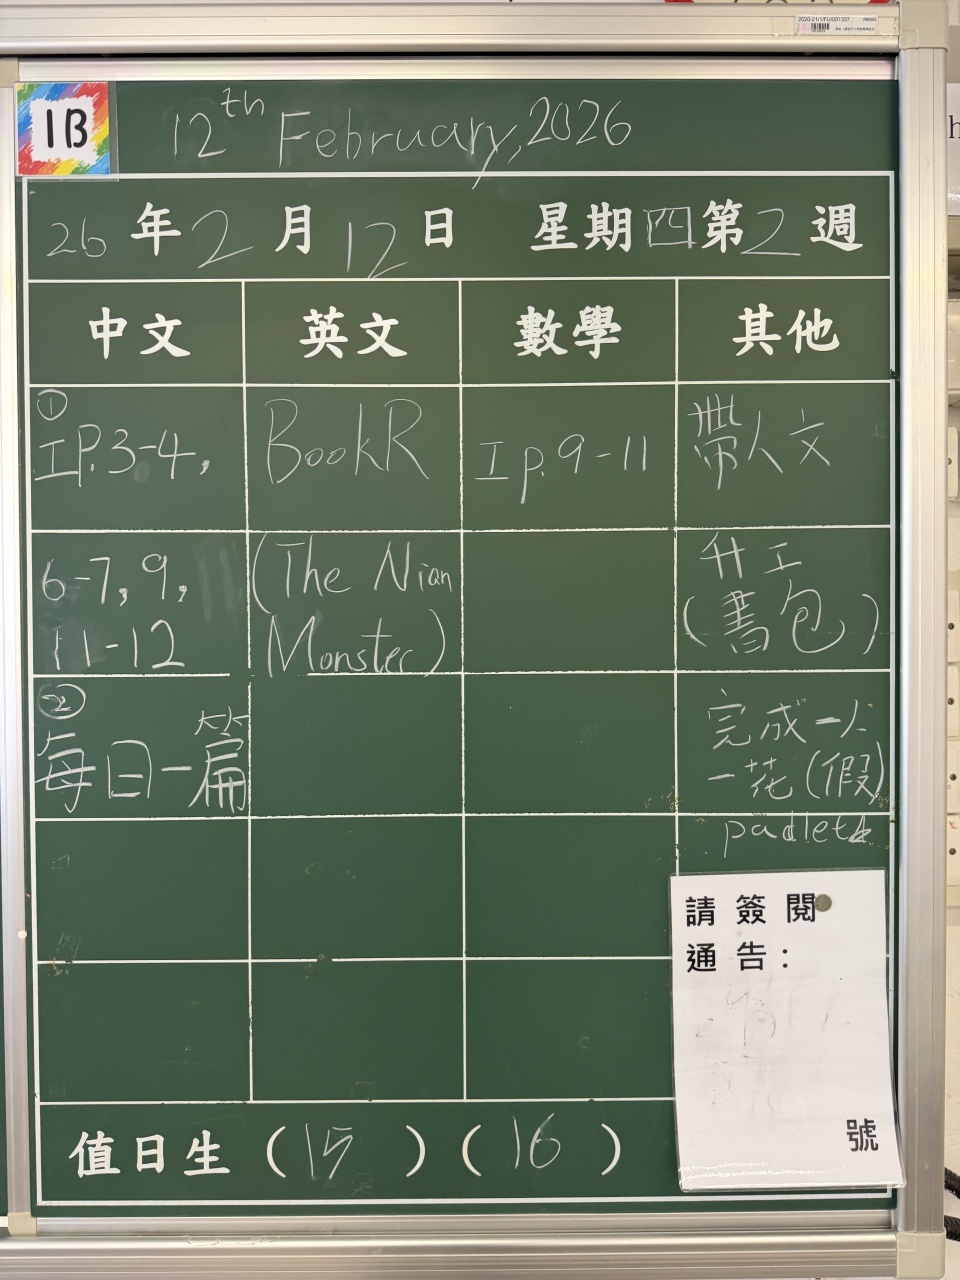 2020-21/1/FU/001337
1B
12th February, 2026
26年2月12日 星期四第2週
中文 英文 數學 其他
①
工P.3-4,
6-7, 9,
11-12
②
每日一篇
BookR
(The Nian
Monster)
工p.9-11
帶人文
升工
(書包)
完成一人
一花(假)
padlet
請簽閱
通告：
號
值日生 (15) (16)